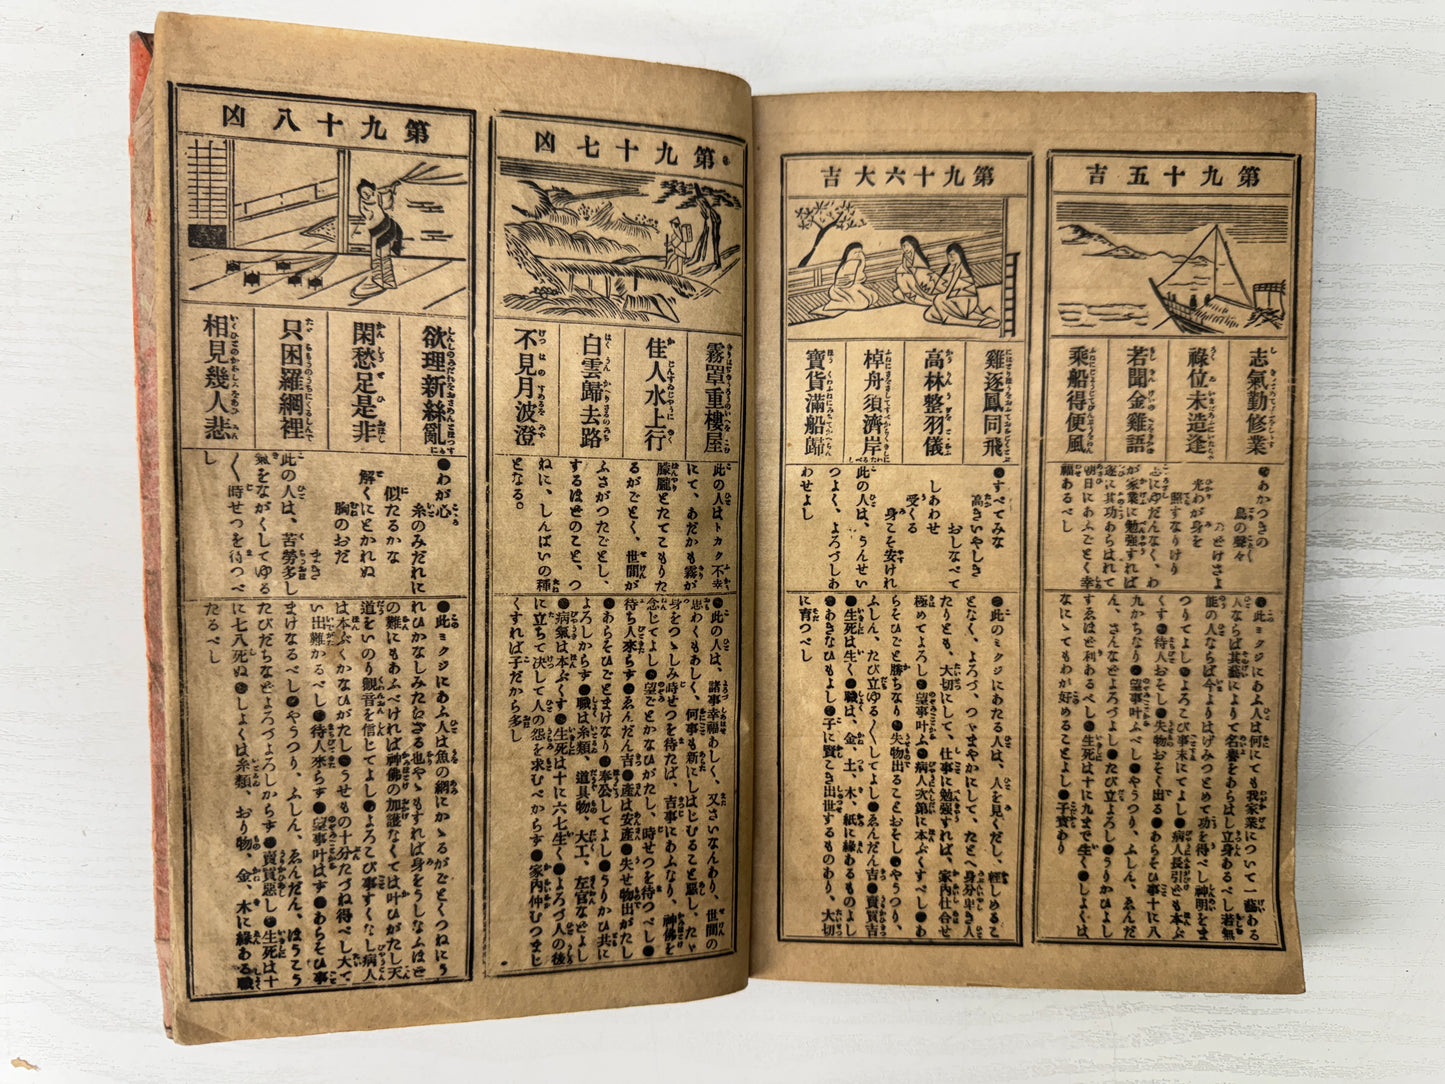 第九十五吉
志氣勤修業
祿位未造逢
若聞金雞語
乘船得便風
●あかつきの
鳥の聲々
光わが身を
照すなりけり
心にゆだんなく、わ
が家業に勉強すれば
遂に其功あらはれて
朝日にあふごとく幸
福あるべし
●此ミクジにあふ人は何にても我家業について一藝ある
人ならば其藝によりて名譽をあらはし立身あるべし若無
能の人ならば今よりはげみつとめて功を得べし神明をま
つりてよし●よろこび事末にてよし●病人長引ども本ぶ
くす●待人おそし●失物おそく出る●あらそひ事十に八
九かちなり●望事叶ふべし●やうつり、ふしん、ゑんだ
ん、さんなどよろづよし●たび立よろし●うりかひよし
すゑはど利あるべし●生死は十に九まで生く●しよくは
なにゝてもわが好めることよし●子寳あり
第九十六大吉
雞逐鳳同飛
高林整羽儀
棹舟須濟岸
寶貨滿船歸
●すべてみな
高きいやしき
おしなべて
しあわせ
受くる
身こそ安けれ
此の人は、うんせい
つよく、よろづしあ
わせよし
●此のミクジにあたる人は、人を見くだし、輕しめるこ
となく、よろづ、つゝまやかにして、たとへ身分卑き人
たりとも、大切にして、仕事に勉強すれば、家内仕合せ
極めてよろし●望事叶ふ●病人次第に本ぶくすべし●あ
らそひごと勝ちなり●失物出ることおそし●やうつり、
ふしん、たび立ゆる〱してよし●ゑんだん吉●賣買吉
●生死は生く●職は、金、土、木、紙に緣あるものよし
●あきなひもよし●子に賢こき出世するものあり、大切
に育つべし
第九十七凶
霧罩重樓屋
佳人水上行
白雲歸去路
不見月波澄
此の人はトカク不幸
にて、あだかも霧が
朦朧とたてこもりた
るがごとく、世間が
ふさがつたごとし、
するはどのこと、つ
ねに、しんぱいの種
となる。
●此の人は、諸事幸福あしく、又さいなんあり、世間の
思わくもあしく、何事も新にしはじむること惡し、たゞ
身をつゝしみ時せつを待たば、吉事にあふなり、神佛を
念じてよし●望ごとかなひがたし、時せつを待つべし●
待ち人來らず●ゑんだん吉●產は安產●失せ物出がたし
●あらそひごとまけなり●奉公してよし●うりかひ共に
よろしからず●職は糸類、道具物、大工、左官などよし
●病氣は本ぶくす●生死は十に六七生く●よろづ人の後
に立ちて決して人の怨を求むべからず●家內仲むつまじ
くすれば子だから多し
第九十八凶
欲理新絲亂
閑愁足是非
只困羅網裡
相見幾人悲
●わが心
糸のみだれに
似たるかな
解くにとかれぬ
胸のおだまき
此の人は、苦勞多し
氣をながくしてゆる
〱、時せつを待つべ
し
●此ミクジにあふ人は魚の網にかゝるがごとくつねにう
れひかなしみたえざる也やゝもすれば身をうしなふほど
の難にもあふべければ神佛の加護なくては叶ひがたし天
道をいのり觀音を信じてよし●よろこび事すくなし病人
は本ぶくかなひがたし●うせもの十分たづね得べし大て
い出難かるべし●待人來らず●望事叶はず●あらそひ事
まけなるべし●やうつり、ふしん、ゑんだん、ほうこう
たびだちなどよろづよろしからず●賣買惡し●生死は十
に七八死ぬ●しよくは糸類、おり物、金、木に緣ある職
たるべし